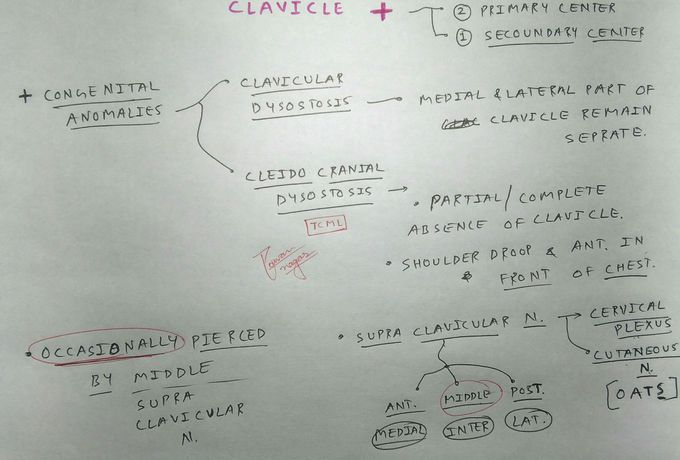 CLAVICLE + ② PRIMARY CENTER
① SECOUNDARY CENTER
+ CONGENITAL
ANOMALIES
CLAVICULAR
DYSOSTOSIS → MEDIAL & LATERAL PART OF
CLAVICLE REMAIN
SEPRATE.
CLEIDO CRANIAL
DYSOSTOSIS →
• PARTIAL/COMPLETE
ABSENCE OF CLAVICLE.
TCML
• SHOULDER DROOP & ANT. IN
FRONT OF CHEST.
• OCCASIONALLY PIERCED
BY MIDDLE
SUPRA
CLAVICULAR
N.
• SUPRA CLAVICULAR N.
ANT. MIDDLE POST.
MEDIAL INTER LAT.
CERVICAL
PLEXUS
CUTANEOUS
N.
[OATS]